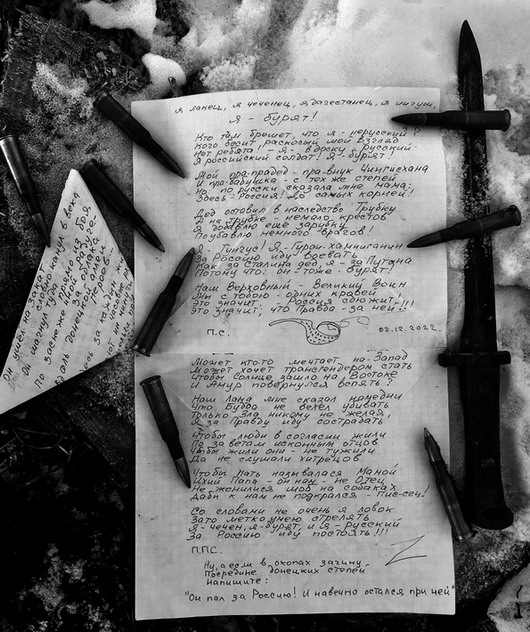 Я лакец, я чеченец, я дагестанец, я ингуш,
Я - бурят!
Кто там брешет, что я - нерусский?
Кого бесит раскосый мой взгляд
Нет ребята, - я - вдрызг русский
Я российский солдат! Я - бурят!
Мой пра-прадед - пра-внук Чингисхана
И пра-бабушка - с тех же степей
Но по русски сказала мне мама:
Здесь - Россия! До самых корней!
Дед оставил в наследство Трубку
А на Трубке - немало крестов
Я добавлю ещё зарубку
Поубавлю немного врагов!
Я - Тунгус! Я - Гуран-хамниганин
За Россию иду воевать
Как за Сталина дед, я - за Путина
Потому что: он - тоже - бурят!
Наш Верховный - Великий Воин
Мы с тобою - одних кровей
Это значит: Россия сдюжит
Это значит, что Правда - за ней!!!
П.С.
02.12.2022
Может кто-то мечтает на-Запад
Может хочет трансгендером стать
Чтобы Солнце зашло на Востоке
И Амур повернулся вспять?
Наш Лама мне сказал намедни
Что Будда не велел убивать
Только Зла никому не желая,
Я за Правду иду сострадать
Чтобы люди в согласии жили
По заветам исконным отцов
Чтобы жили они - не тужили
Да не слушали хитрецов
Чтобы Мать называлася Мамой
Ихий Папа - он нам - не Отец
Не женилися чтоб на собаках
Дабы к нам не подкрался - Пис-сец!
Со словами не очень я ловок
Зато метко умею стрелять
Я - чечен, я - бурят, и я - русский
За Россию иду постоять!!!
П.П.С.
Ну, а если в окопах загину
Посредине донецких степей
Напишите:
"Он пал за Россию! И навечно остался при ней"
Он ушёл на закат
туда канул в века
Он шагнул
По заснеженной